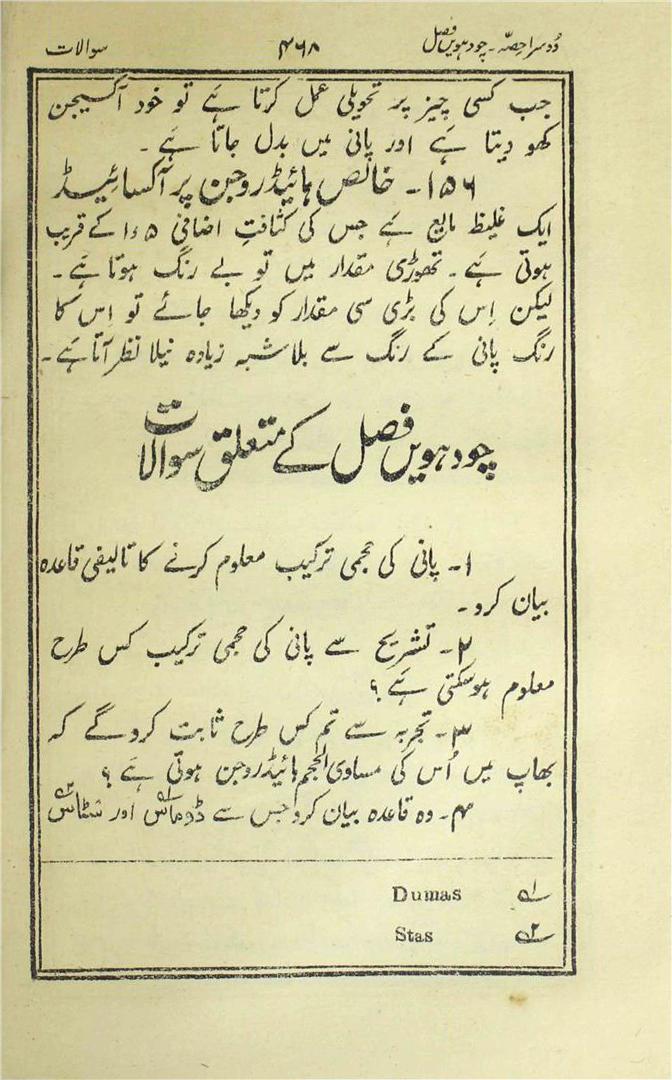 دُوسرا حِصّہ۔ چودہویں فصل ۴۶۸ سوالات
جب کسی چیز پر تحویلی عمل کرتا ہَے تو خود آکسیجن
کھو دیتا ہَے اور پانی میں بدل جاتا ہَے۔
۱۵۶۔ خالص ہائیڈروجن پر آکسائیڈ
ایک غلیظ مایع ہَے جس کی کثافتِ اضافی ۱ء۵ کے قریب
ہوتی ہَے۔ تھوڑی مقدار میں تو بے رنگ ہوتا ہَے۔
لیکن اِس کی بڑی سی مقدار کو دیکھا جائے تو اِس کا
رنگ پانی کے رنگ سے بلا شبہ زیادہ نیلا نظر آتا ہَے۔
چودہویں فصل کے متعلق سوالات
۱۔ پانی کی حجمی ترکیب معلوم کرنے کا تالیفی قاعدہ
بیان کرو۔
۲۔ تشریح سے پانی کی حجمی ترکیب کس طرح
معلوم ہوسکتی ہَے ؟
۳۔ تجربہ سے تم کس طرح ثابت کروگے کہ
بھاپ میں اُس کی مساوی الحجم ہائیڈروجن ہوتی ہَے ؟
۴۔ وہ قاعدہ بیان کرو جس سے ڈوماس۱؎ اور شٹاس۲؎
۱؎ Dumas
۲؎ Stas